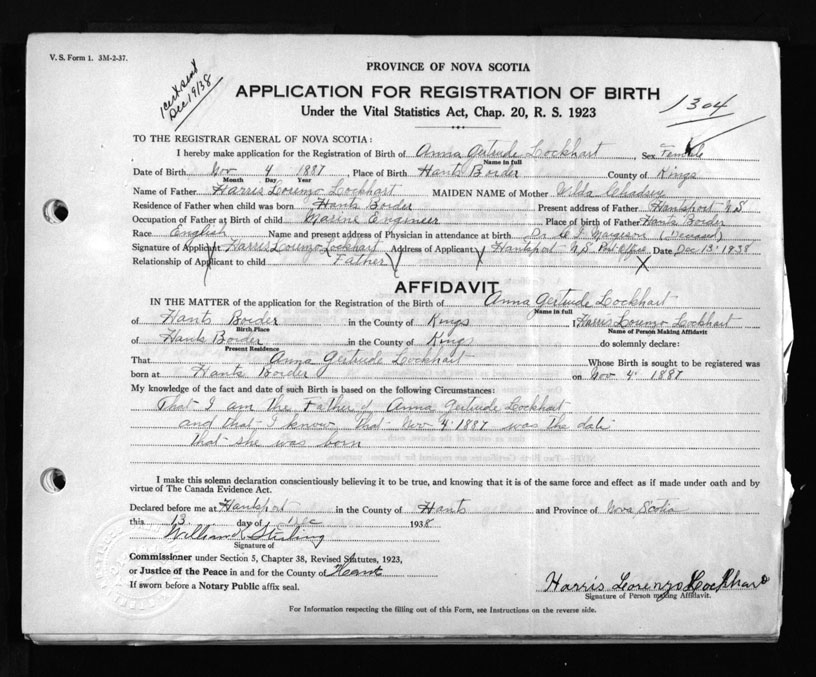 V. S. Form 1. 3M-2-37.
1 cert sent
Dec 19/38
PROVINCE OF NOVA SCOTIA
APPLICATION FOR REGISTRATION OF BIRTH
1304
Under the Vital Statistics Act, Chap. 20, R. S. 1923
TO THE REGISTRAR GENERAL OF NOVA SCOTIA:
I hereby make application for the Registration of Birth of Anna Gertrude Lockhart Sex Female
Name in full
Date of Birth Nov 4 1887 Place of Birth Hants Border County of Kings
Month Day Year
Name of Father Harris Lorenzo Lockhart MAIDEN NAME of Mother Wilda
Residence of Father when child was born Hants Border Present address of Father Hantsport N.S
Occupation of Father at Birth of child Marine Engineer Place of birth of Father Hants Border
Race English Name and present address of Physician in attendance at birth Dr (Deceased)
Signature of Applicant Harris Lorenzo Lockhart Address of Applicant Hantsport N.S. Post Office Date Dec 13. 1938
Relationship of Applicant to child Father
AFFIDAVIT
IN THE MATTER of the application for the Registration of the Birth of Anna Gertrude Lockhart
Name in full
of Hants Border in the County of Kings I, Harris Lorenzo Lockhart
Birth Place Name of Person Making Affidavit
of Hants Border in the County of Kings do solemnly declare:
Present Residence
That Anna Gertrude Lockhart Whose Birth is sought to be registered was
born at Hants Border on Nov 4. 1887
My knowledge of the fact and date of such Birth is based on the following Circumstances:
That I am the Father of Anna Gertrude Lockhart
and that I know that Nov 4. 1887 was the date
that she was born
I make this solemn declaration conscientiously believing it to be true, and knowing that it is of the same force and effect as if made under oath and by
virtue of The Canada Evidence Act.
Declared before me at Hantsport in the County of Hants and Province of Nova Scotia
this 13 day of Dec 1938
William K Stirling
Signature of
Commissioner under Section 5, Chapter 38, Revised Statutes, 1923,
or Justice of the Peace in and for the County of Hants
If sworn before a Notary Public affix seal.
Harris Lorenzo Lockhart
Signature of Person making Affidavit.
For Information respecting the filling out of this Form, see Instructions on the reverse side.